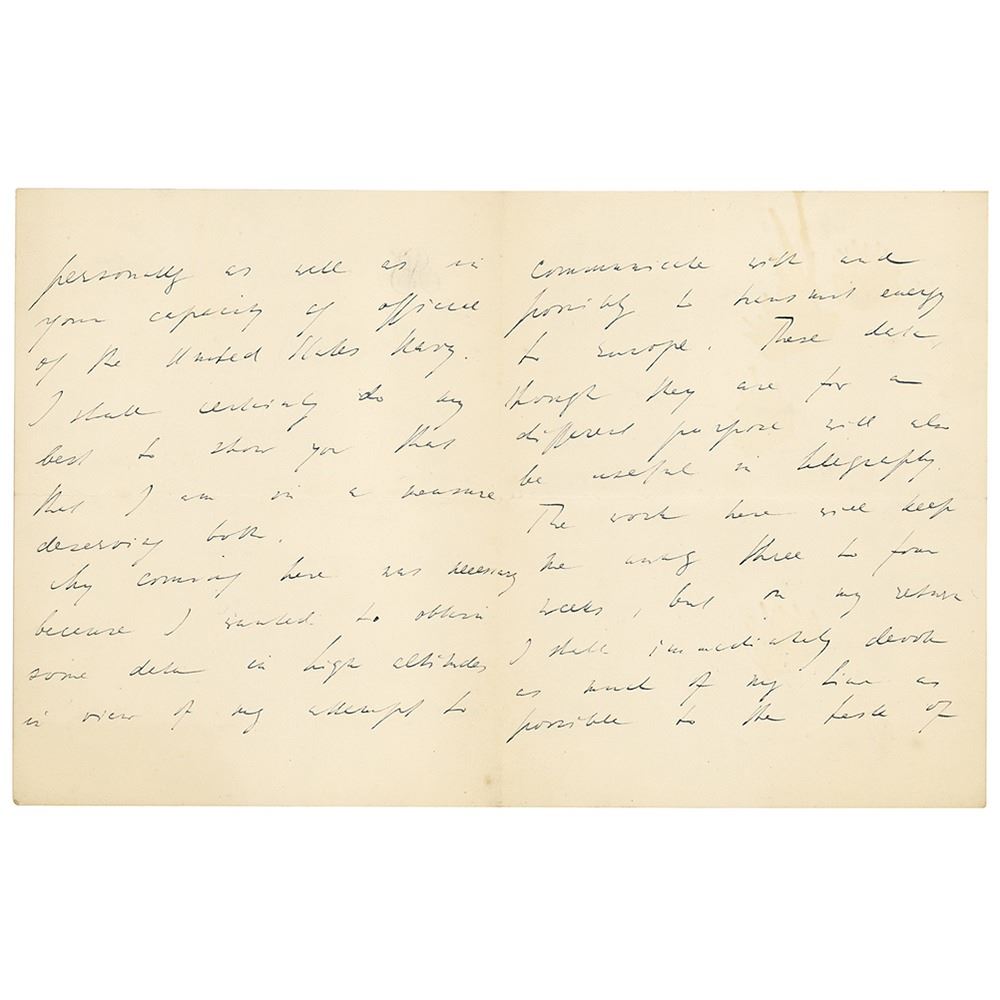 personally as well as in
your capacity of official
of the United States Navy.
I shall certainly do my
best to show you that
that I am in a measure
deserving both.
My coming here was necessary
because I wanted to obtain
some data in high altitudes
in view of my attempt to
communicate with and
possibly to transmit energy
to Europe. These data,
though they are for a
different purpose will also
be useful in telegraphy.
The work here will keep
me three to four
weeks, but on my return
I shall immediately devote
as much of my time as
possible to the task of